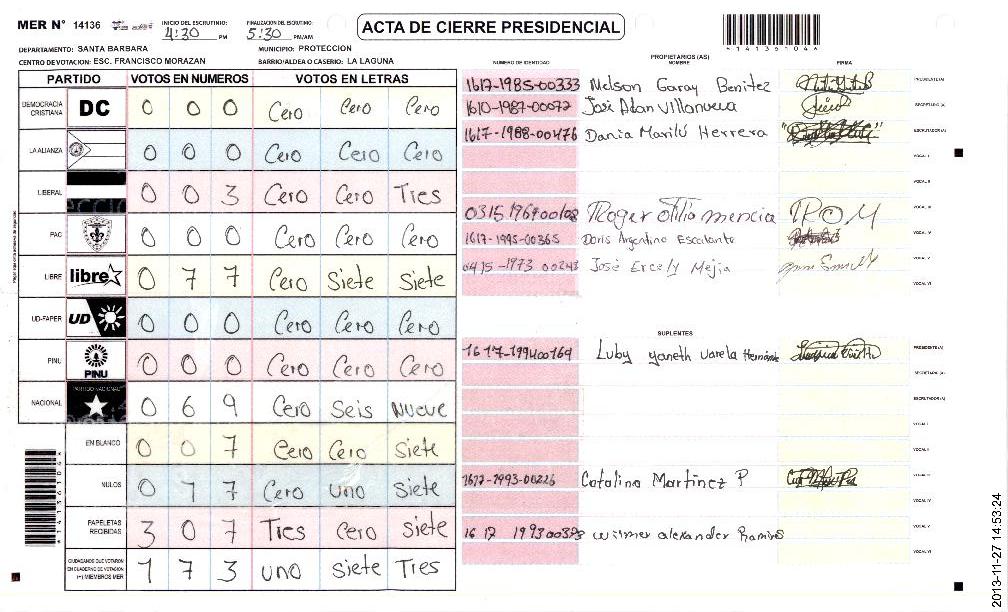 MER N° 14136
INICIO DEL ESCRUTINIO: 4:30 PM
FINALIZACIÓN DEL ESCRUTINIO: 5:30 PM/AM
ACTA DE CIERRE PRESIDENCIAL
*14136104*
DEPARTAMENTO: SANTA BARBARA MUNICIPIO: PROTECCION
CENTRO DE VOTACION: ESC. FRANCISCO MORAZAN BARRIO/ALDEA O CASERIO: LA LAGUNA
PARTIDO VOTOS EN NUMEROS VOTOS EN LETRAS
DEMOCRACIA CRISTIANA DC 0 0 0 Cero Cero Cero
LA ALIANZA 0 0 0 Cero Cero Cero
LIBERAL 0 0 3 Cero Cero Tres
PAC 0 0 0 Cero Cero Cero
LIBRE libre 0 7 7 Cero Siete Siete
UD-FAPER UD 0 0 0 Cero Cero Cero
PINU PINU 0 0 0 Cero Cero Cero
NACIONAL PARTIDO NACIONAL 0 6 9 Cero Seis Nueve
EN BLANCO 0 0 7 Cero Cero Siete
NULOS 0 1 7 Cero uno Siete
PAPELETAS RECIBIDAS 3 0 7 Tres Cero Siete
CIUDADANOS QUE VOTARON EN CUADERNO DE VOTACION (+) MIEMBROS MER 1 7 3 uno Siete Tres
*14136104*
PROPRIETARIOS (AS)
NUMERO DE IDENTIDAD NOMBRE FIRMA
1617-1985-00333 Nelson Garay Benitez PRESIDENTE(A)
1610-1987-00072 José Adan Villanueva SECRETARIO (A)
1617-1988-00476 Dania Marilú Herrera ESCRUTADOR (A)
VOCAL I
VOCAL II
0315196900108 Roger Otilio mencia ROM VOCAL III
1617-1995-00365 Doris Argentina Escalante VOCAL IV
0415-1973 00243 José Ercely Mejia VOCAL V
VOCAL VI
SUPLENTES
1617-199400169 Luby yaneth varela PRESIDENTE(A)
SECRETARIO (A)
ESCRUTADOR (A)
VOCAL I
VOCAL II
1617-1993-00226 Catalina Martinez P VOCAL III
VOCAL IV
1617 1993 00373 wilmer alexander Ramires VOCAL V
VOCAL VI
2013-11-27 14:53:24